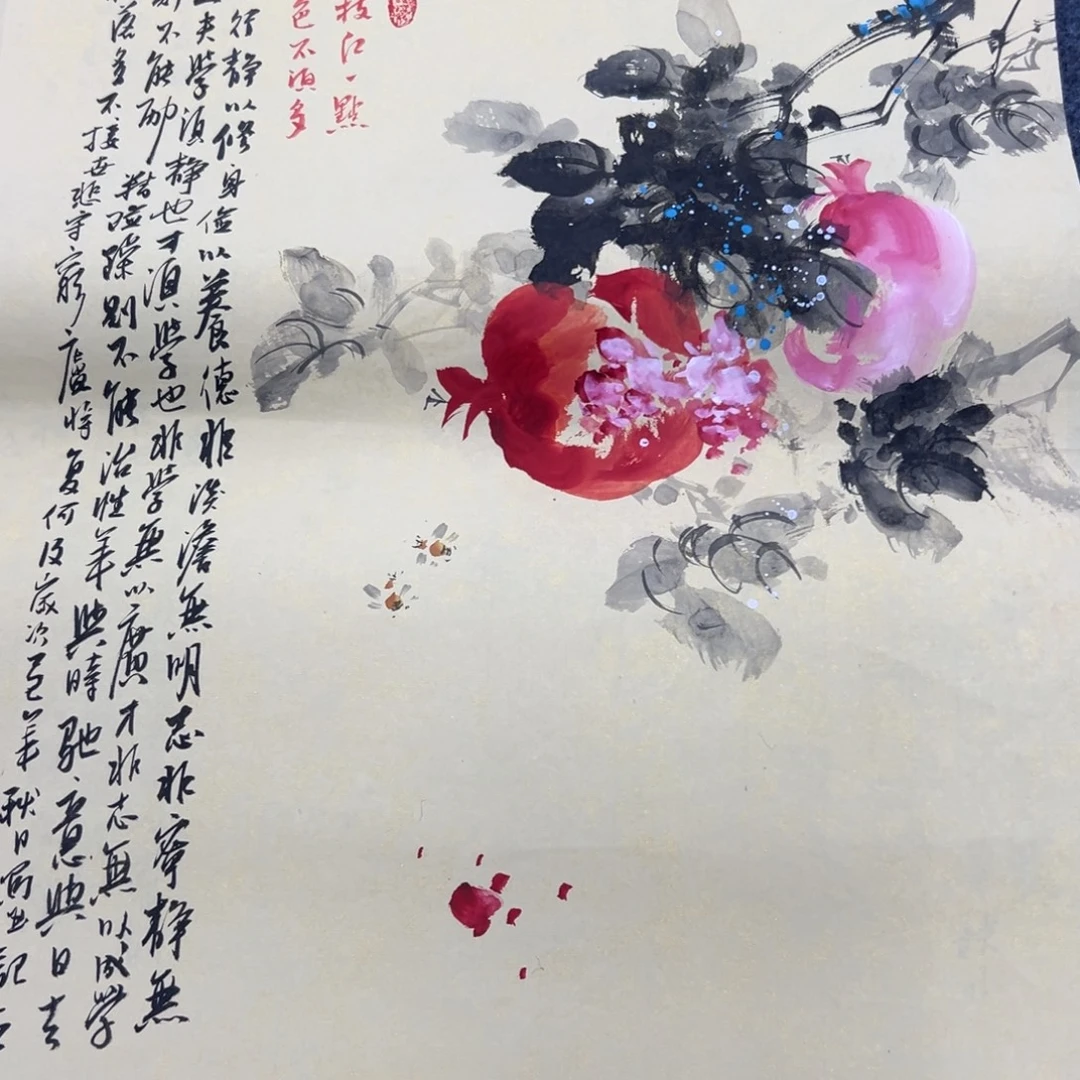 枝紅一點
色不須多
行靜以修身儉以養德非淡澹無明志非寧靜無
夫學須靜也才須學也非學無以廣才非志無以成學
不能勵精險躁則不能治性年與時馳意與日去
落多不接世悲守窮廬將復何及歲次巳年
秋日寫並記